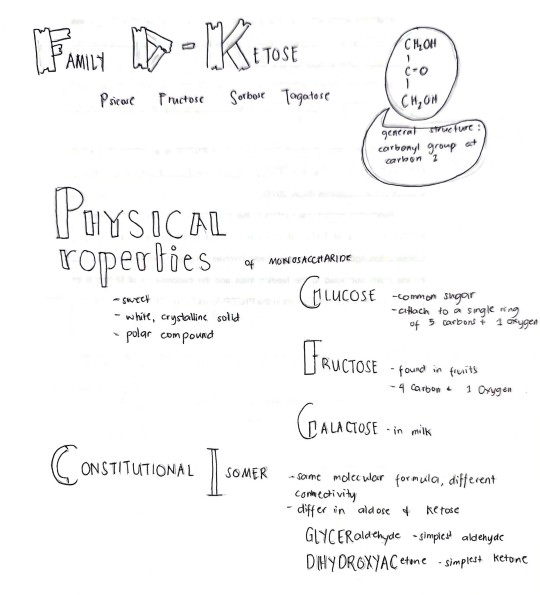 FAMILY D-KETOSE
Psicose Fructose Sorbose Tagatose
CH₂OH
C-O
CH₂OH
general structure:
carbonyl group at
carbon 2
PHYSICAL
roperties of MONOSACCHARIDE
-sweet
- white, crystalline solid
- polar compound
GLUCOSE -common sugar
-attach to a single ring
of 5 carbons + 1 oxygen
FRUCTOSE - found in fruits
- 4 Carbon + 1 Oxygen
GALACTOSE - in milk
CONSTITUTIONAL ISOMER
-same molecular formula, different
connectivity
- differ in aldose & ketose
GLYCERaldehyde -simplest aldehyde
DIHYDROXYACetone - simplest ketone